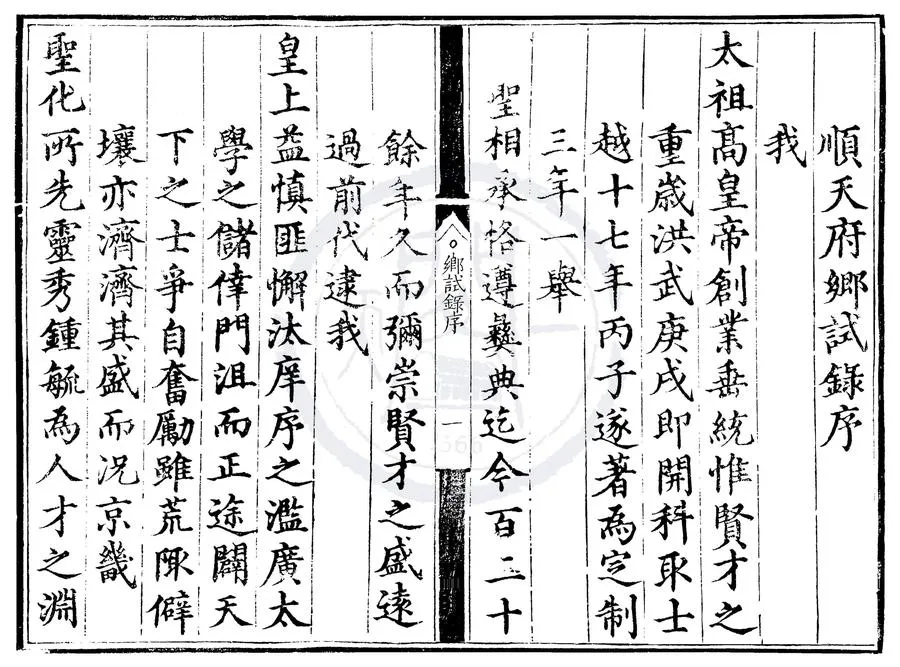 順天府鄉試錄序
我
太祖高皇帝創業垂統惟賢才之
重歲洪武庚戌即開科取士
越十七年丙子遂著為定制
三年一舉
聖相承恪遵彝典迄今百二十
鄉試錄序
一
餘年久而彌崇賢才之盛遠
過前代逮我
皇上益慎匪懈汰庠序之濫廣太
學之儲倖門沮而正途闢天
下之士爭自奮勵雖荒陬僻
壤亦濟濟其盛而況京畿
聖化所先靈秀鍾毓為人才之淵